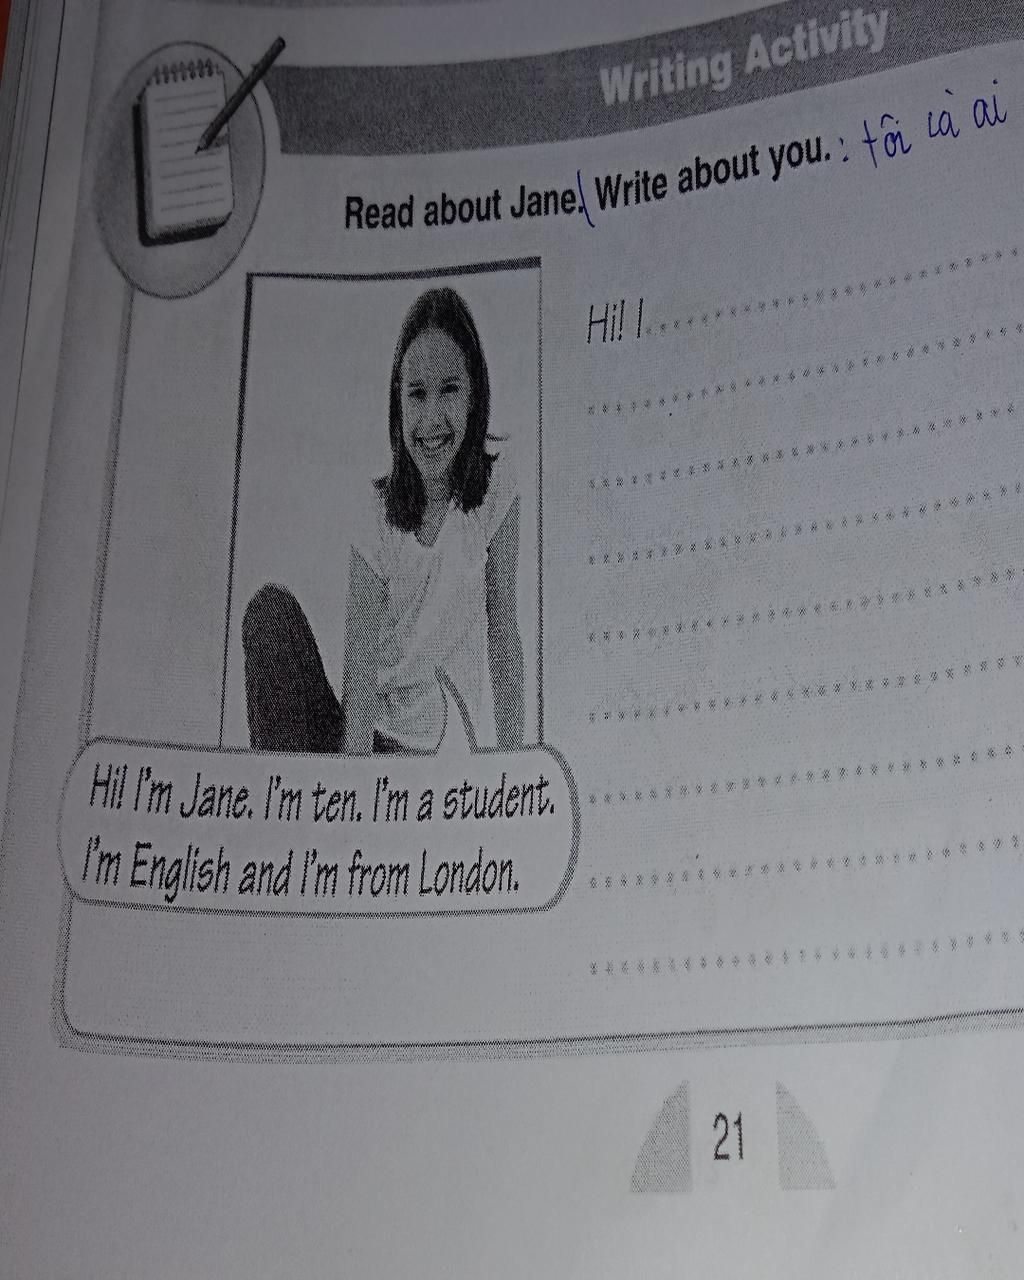 Writing Activity
Read about Jane. Write about you. : tôi là ai
Hi! I
Hi! I'm Jane. I'm ten. I'm a student.
I'm English and I'm from London.
21